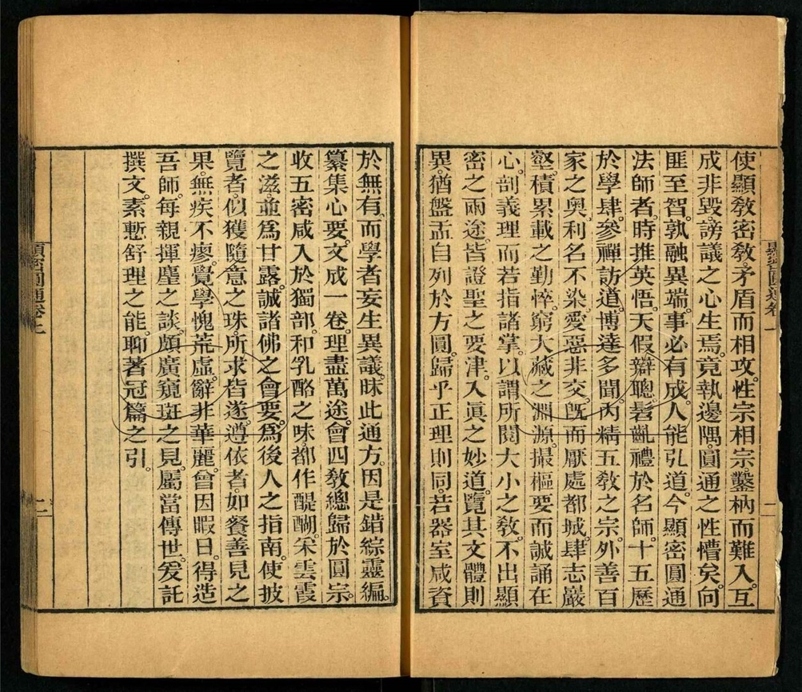 使顯敎密敎。矛盾而相攻。性宗相宗鑿枘而難入。互
成非毀。謗議之心生焉。竟執邊隅。圓通之性懵矣。向
匪至智。孰融異端。事必有成。人能弘道。今顯密圓通
法師者。時推英悟。天假辯聰。髫齔禮於名師。十五歷
於學肆。參禪訪道。博達多聞。內精五敎之宗。外善百
家之奧。利名不染。愛惡非交。旣而厭處都城。肆志巖
壑。積累載之勤悴。窮大藏之淵源。撮樞要而誠誦在
心。剖義理而若指諸掌。以謂所閱大小之敎。不出顯
密之兩途。皆證聖之要津。入眞之妙道。覽其文體則
異。猶盤盂自列於方圓。歸乎正理則同。若器室咸資
顯密圓通卷上
二
於無有。而學者妄生異議。昧此通方。因是錯綜靈編。
纂集心要。文成一卷。理盡萬途。會四敎總歸於圓宗。
收五密咸入於獨部。和乳酪之味。都作醍醐。采雲霞
之滋。並爲甘露。誠諸佛之會要。爲後人之指南。使披
覽者。似獲隨意之珠。所求皆遂。遵依者如餐善見之
果。無疾不瘳。覺學愧荒虛。辭非華麗。曾因暇日。得造
吾師。每親揮麈之談。頗廣窺斑之見。屬當傳世。爰託
撰文。素慙舒理之能。聊著冠篇之引。
顯密圓通卷上
二